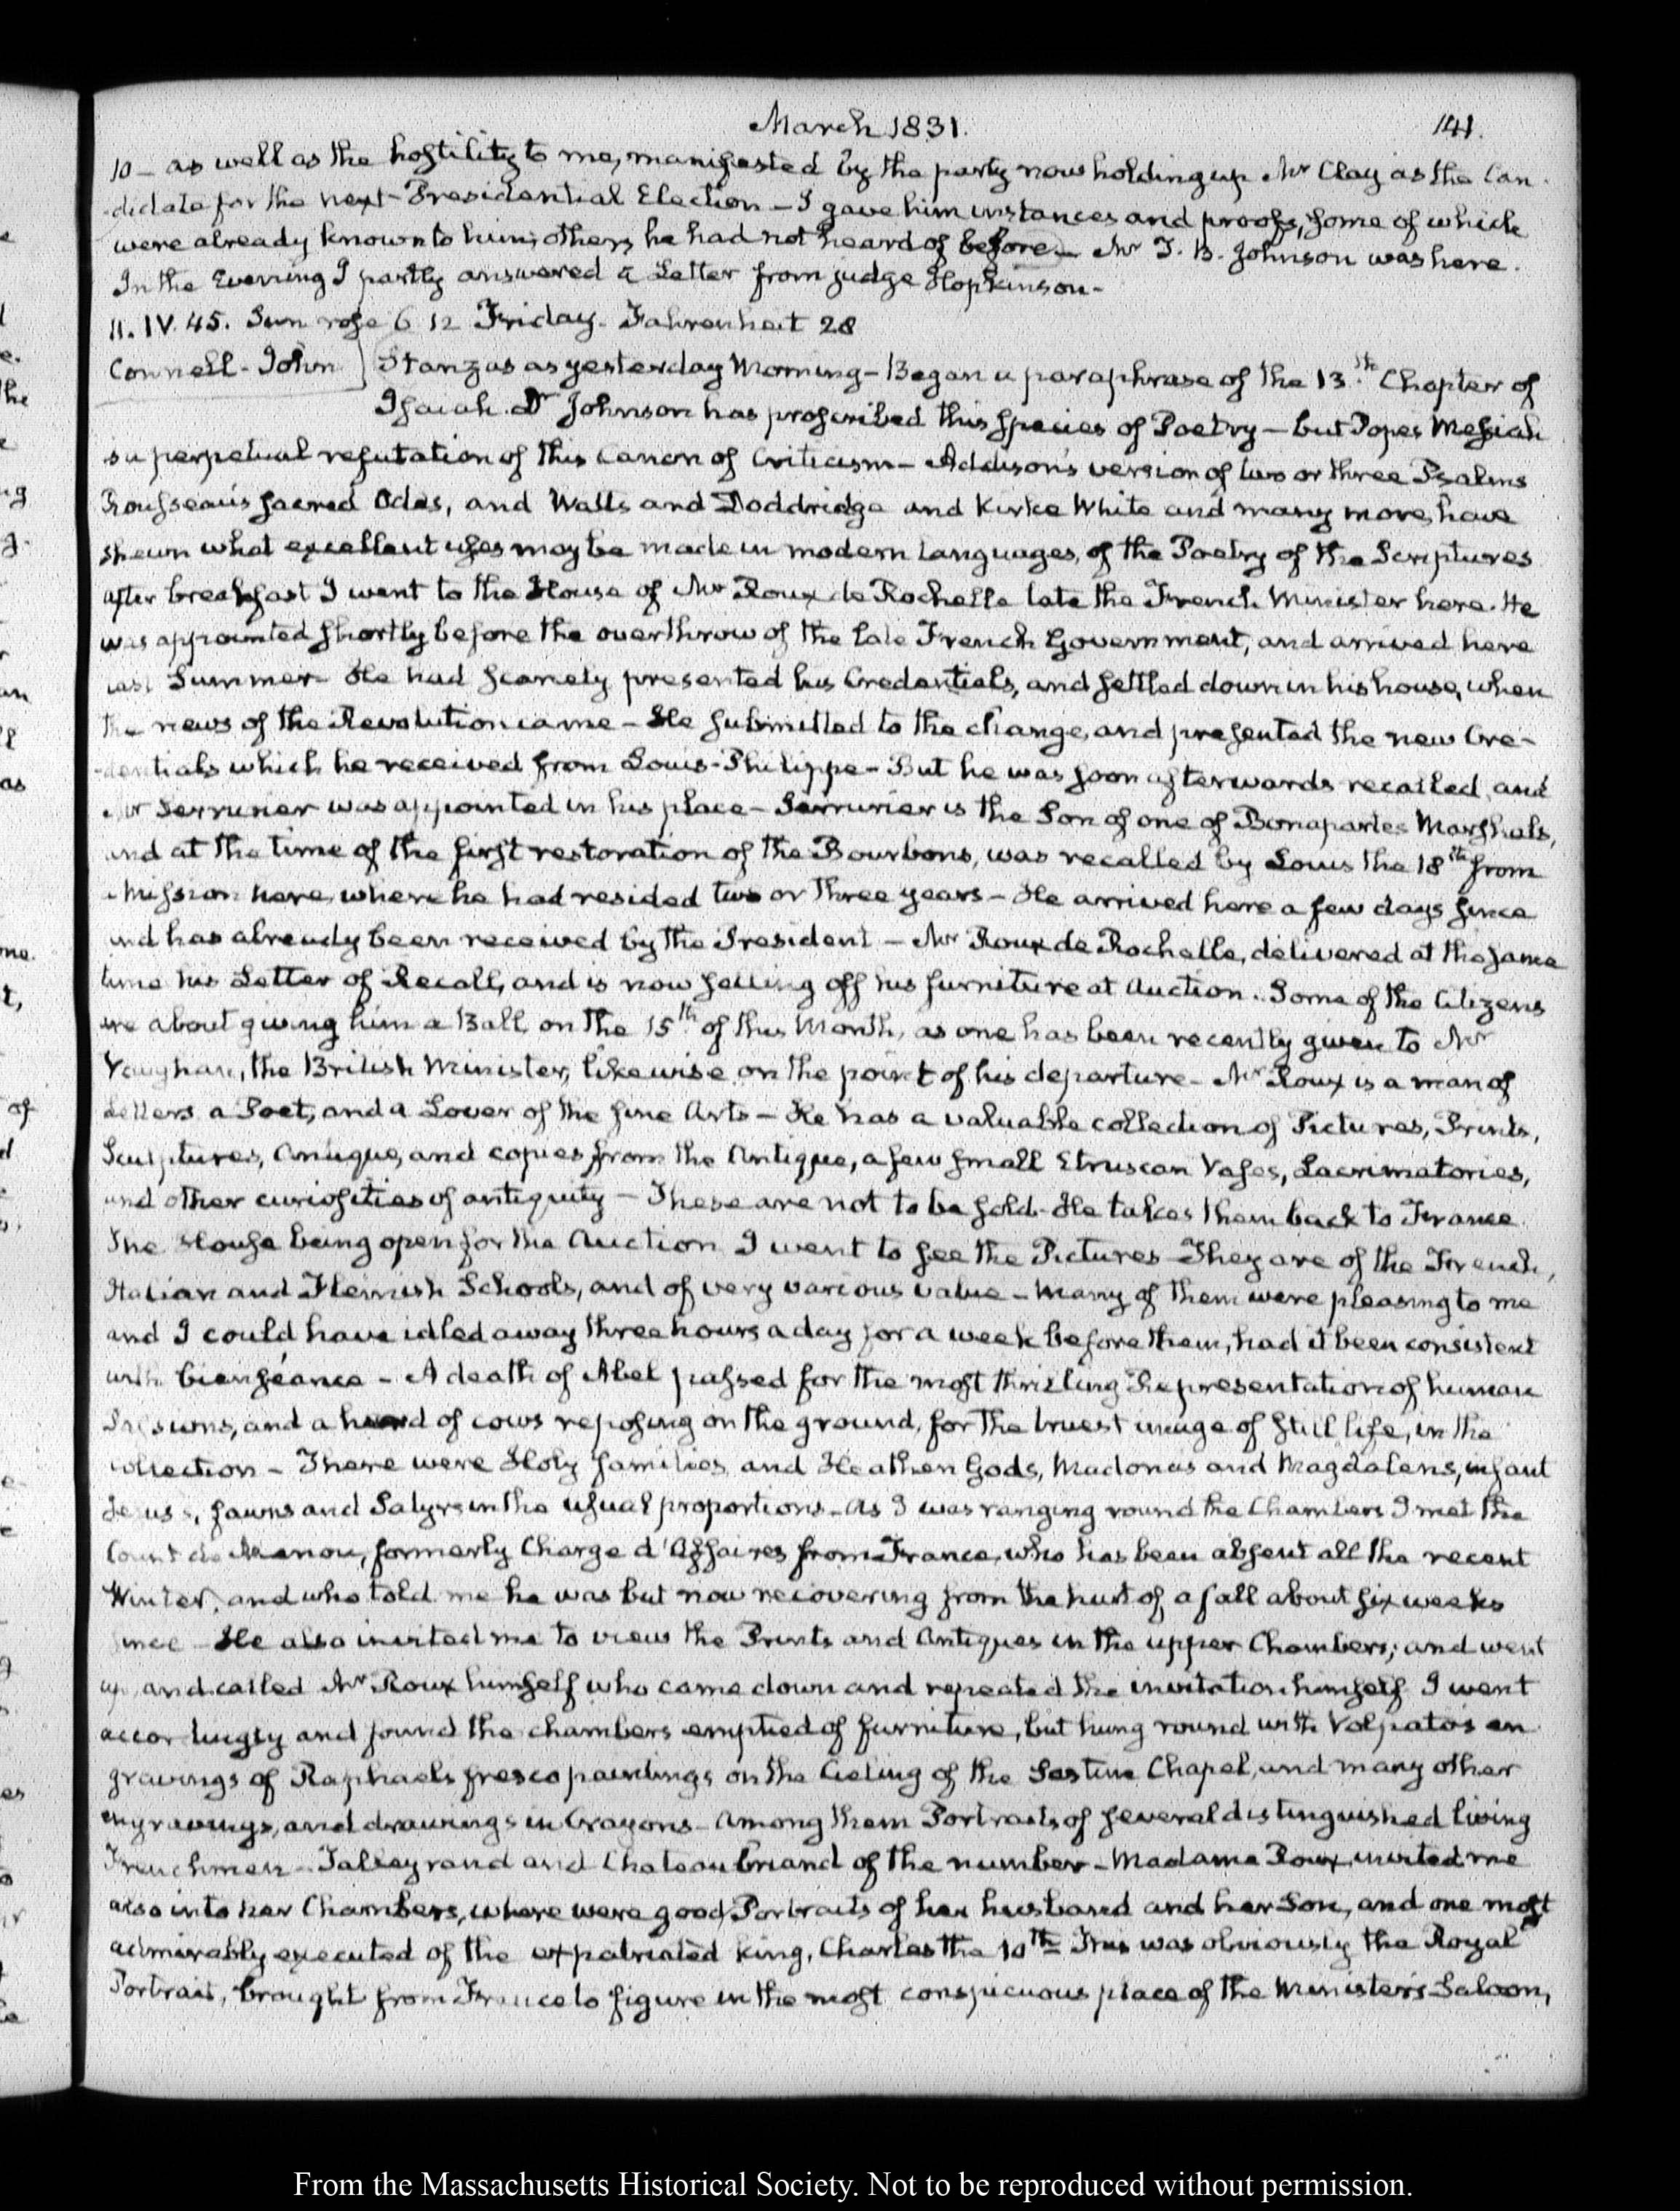 March 1831.
141.
10 — as well as the hostility to me, manifested by the party now holding up Mr Clay as the Can-
-didate for the next Presidential Election — I gave him instances and proofs, some of which
were already known to him; others he had not heard of before — Mr T. B. Johnson was here.
In the Evening I partly answered a Letter from judge Hopkinson-
11. IV. 45. Sun rose 6 12 Friday. Fahrenheit 28
Connell - John } Stanzas as yesterday Morning — Began a paraphrase of the 13.th Chapter of
Isaiah. Dr Johnson has proscribed this species of Poetry — but Popes Messiah
is a perpetual refutation of this Canon of Criticism — Addison's version of two or three Psalms
Rousseau's sacred Odes, and Watts and Doddridge and Kirke White and many more, have
shewn what excellent uses may be made in modern languages, of the Poetry of the Scriptures
after breakfast I went to the House of Mr Roux de Rochelle late the French Minister here. He
was appointed shortly before the overthrow of the late French Government, and arrived here
last Summer. He had scarcely presented his Credentials, and settled down in his house, when
the news of the Revolution came — He submitted to the change, and presented the new Cre-
-dentials which he received from Louis-Philippe — But he was soon afterwards recalled, and
Mr Serrurier was appointed in his place — Serrurier is the Son of one of Bonapartes Marshals,
and at the time of the first restoration of the Bourbons, was recalled by Louis the 18th from
a Mission here, where he had resided two or three years — He arrived here a few days since
and has already been received by the President — Mr Roux de Rochelle, delivered at the same
time his Letter of Recall, and is now selling off his furniture at Auction. Some of the Citizens
are about giving him a Ball, on the 15th of this Month, as one has been recently given to Mr
Vaughan, the British Minister, likewise on the point of his departure — Mr Roux is a man of
Letters a Poet, and a Lover of the fine Arts — He has a valuable collection of Pictures, Prints,
Sculptures, Antique, and copies from the Antique, a few small Etruscan Vases, Lacrimatories,
and other curiosities of antiquity — These are not to be sold. He takes them back to France.
The House being open for the Auction I went to see the Pictures — They are of the French,
Italian and Flemish Schools, and of very various value — Many of them were pleasing to me
and I could have idled away three hours a day for a week before them, had it been consistent
with bienséance — A death of Abel passed for the most thrilling Representation of human
Passions, and a herd of cows reposing on the ground, for the truest image of still life, in the
collection — There were Holy families, and Heathen Gods, Madonas and Magdalens, infant
Jesus's, fawns and Satyrs in the usual proportions — As I was ranging round the Chambers I met the
Count de Menou, formerly Charge d'Affaires from France, who has been absent all the recent
Winter, and who told me he was but now recovering from the hurt of a fall about six weeks
since — He also invited me to view the Prints and Antiques in the upper Chambers; and went
up, and called Mr Roux himself who came down and repeated the invitation himself I went
accordingly and found the chambers emptied of furniture, but hung round with Volpatos en-
gravings of Raphaels fresco paintings on the Cieling of the Sestine Chapel, and many other
engravings, and drawings in Crayons — Among them Portraits of several distinguished living
Frenchmen — Talleyrand and Chateaubriand of the number — Madame Roux invited me
also into her Chambers, where were good Portraits of her husband and her Son, and one most
admirably executed of the expatriated king, Charles the 10th This was obviously the Royal
Portrait, brought from France to figure in the most conspicuous place of the Minister's Saloon,
From the Massachusetts Historical Society. Not to be reproduced without permission.